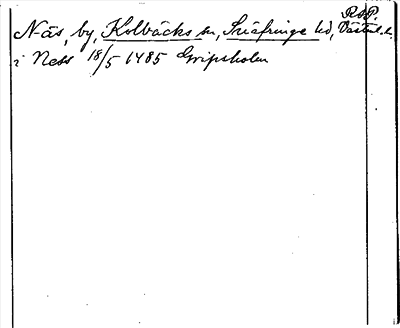 RAP.
Näs, by, Kolbäcks sn, Snäfringe hd, Västml. l.
i Ness 18/5 1485 Gripsholm